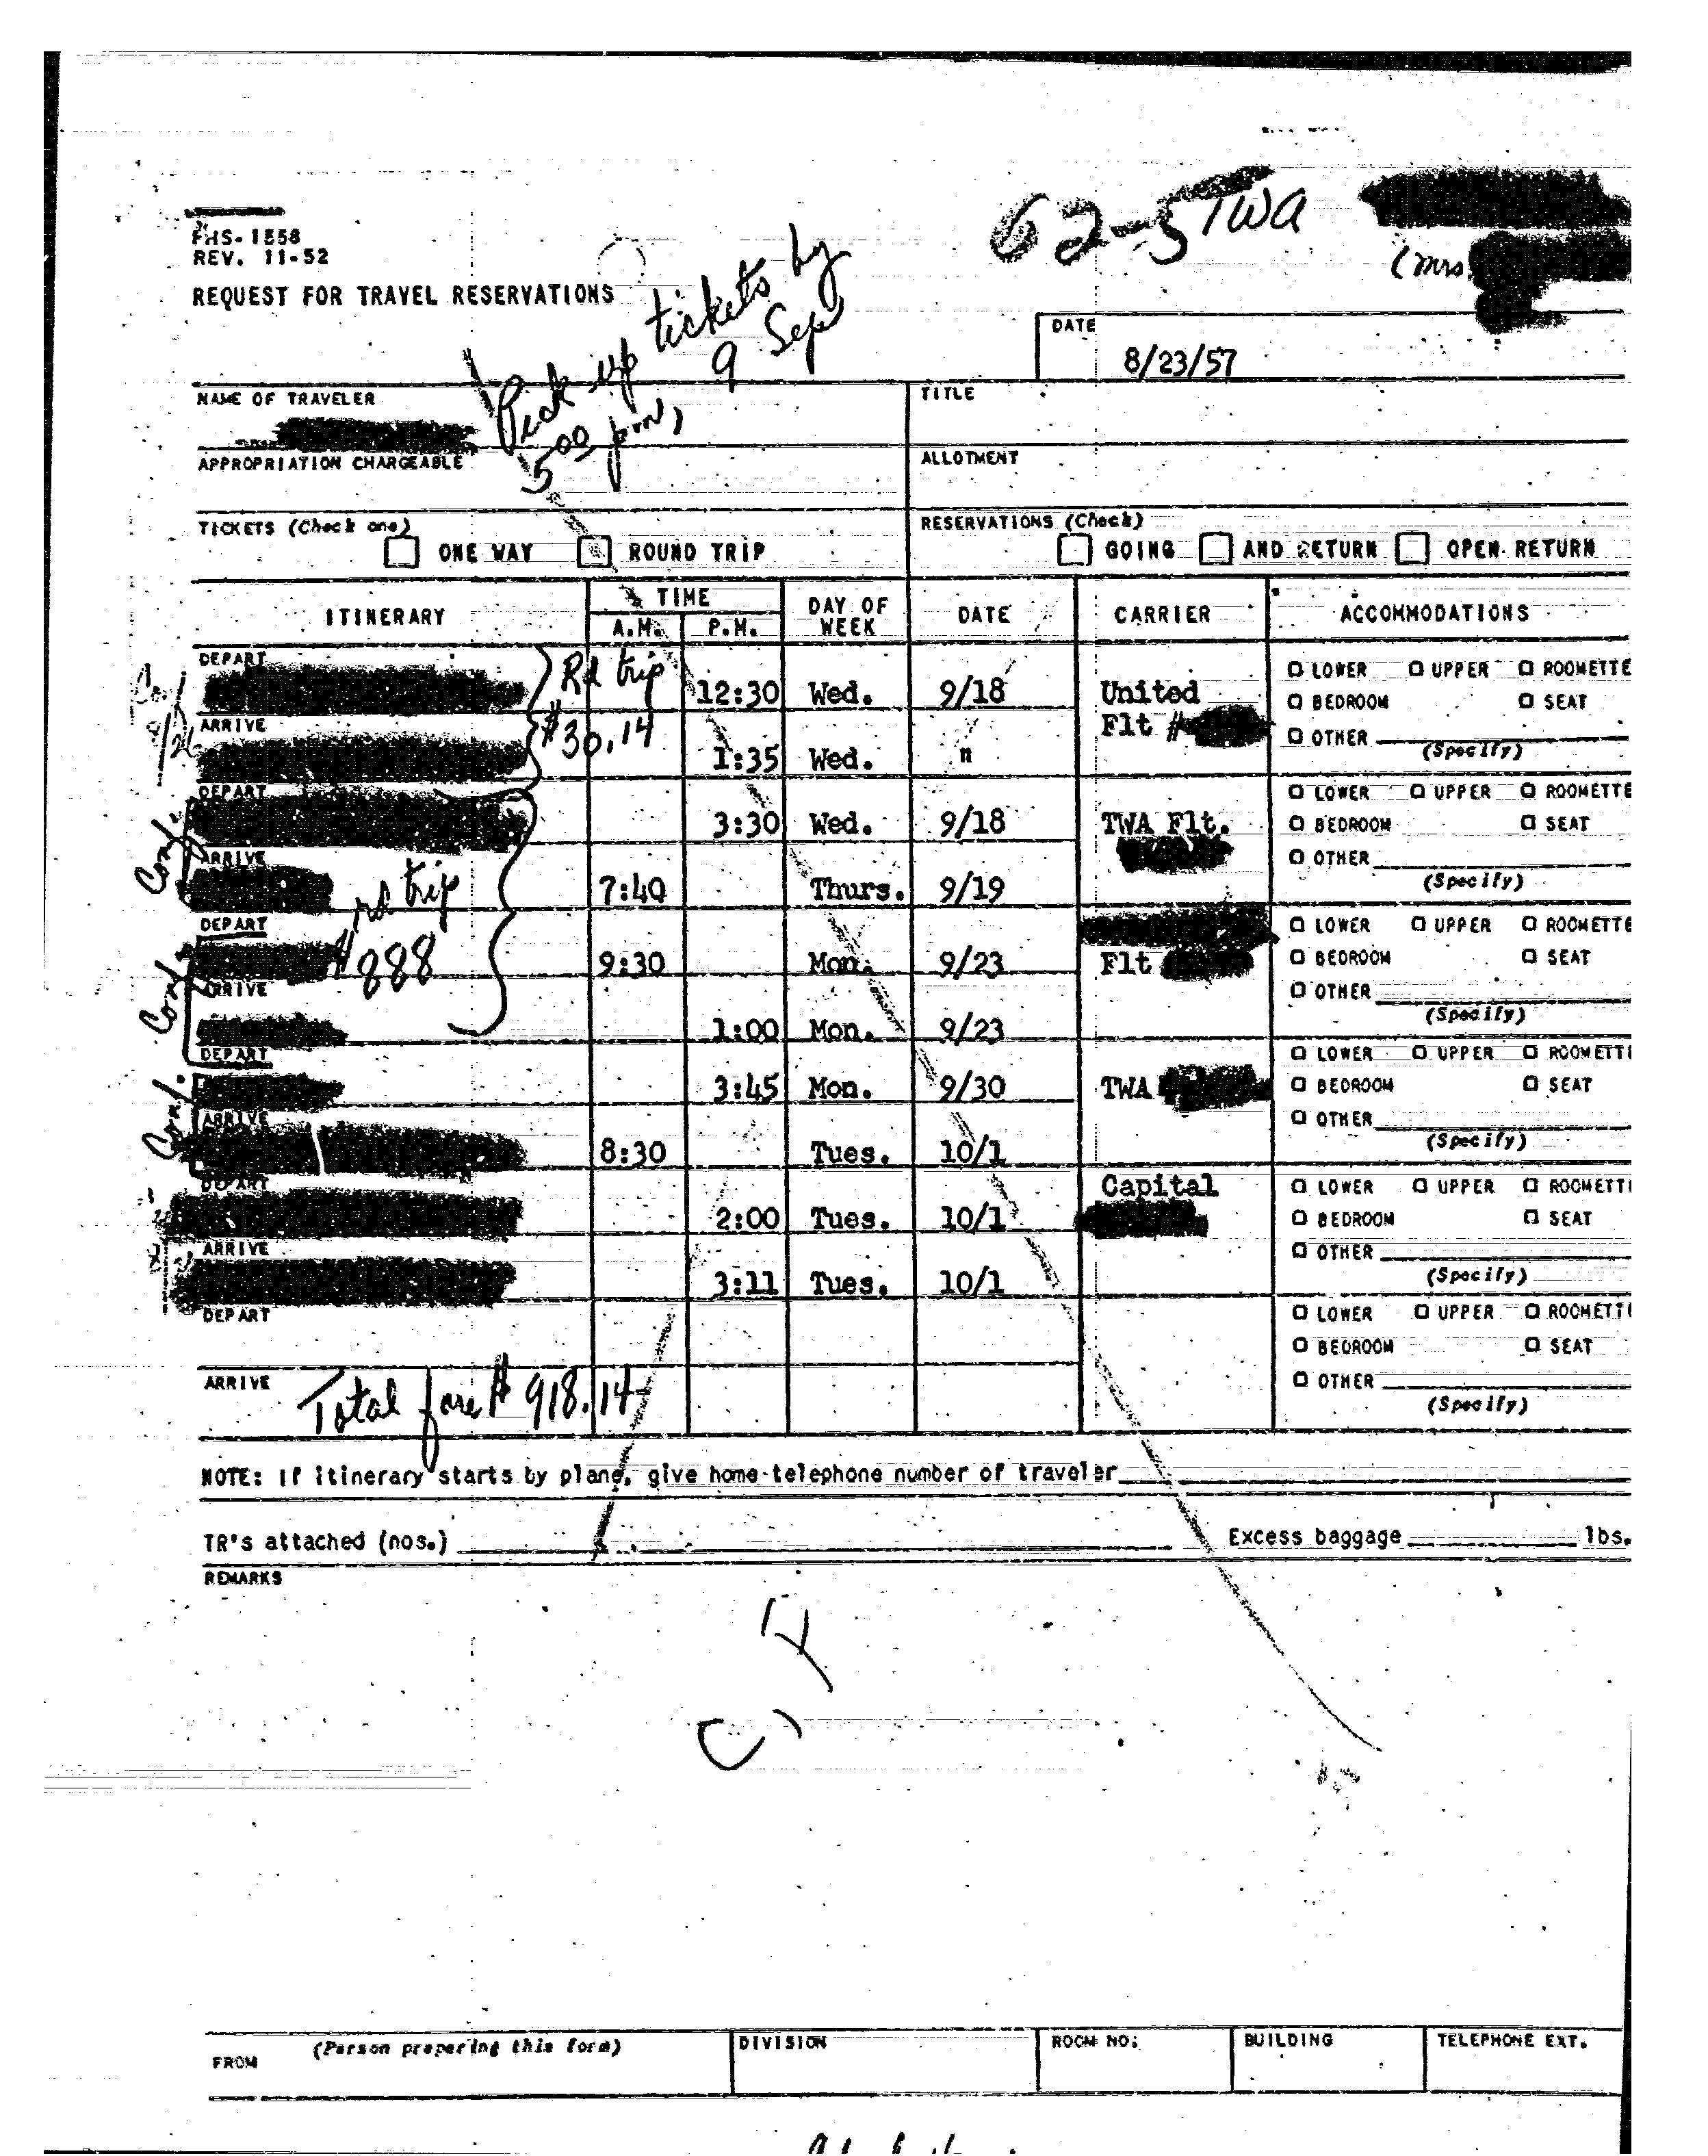 PHS-1558
REV. 11-52
REQUEST FOR TRAVEL RESERVATIONS
62-5 TWA
(Mrs.
Pick up tickets by
5:00 pm, 9 Sept
DATE
8/23/57
NAME OF TRAVELER
TITLE
APPROPRIATION CHARGEABLE
ALLOTMENT
TICKETS (Check one)
ONE WAY ROUND TRIP
RESERVATIONS (Check)
GOING AND RETURN OPEN RETURN
ITINERARY TIME DAY OF WEEK DATE CARRIER ACCOMMODATIONS
A.M. P.M.
DEPART Rd trip 12:30 Wed. 9/18 United
Flt #
LOWER UPPER ROOMETTE
BEDROOM SEAT
OTHER
(Specify)
ARRIVE $30.14 1:35 Wed. "
Conf.
DEPART 3:30 Wed. 9/18 TWA Flt.
LOWER UPPER ROOMETTE
BEDROOM SEAT
OTHER
(Specify)
ARRIVE rd trip 7:40 Thurs. 9/19
Conf.
DEPART $888 9:30 Mon. 9/23 Flt
LOWER UPPER ROOMETTE
BEDROOM SEAT
OTHER
(Specify)
ARRIVE 1:00 Mon. 9/23
Conf.
DEPART 3:45 Mon. 9/30 TWA
LOWER UPPER ROOMETTE
BEDROOM SEAT
OTHER
(Specify)
ARRIVE 8:30 Tues. 10/1
DEPART 2:00 Tues. 10/1 Capital
LOWER UPPER ROOMETTE
BEDROOM SEAT
OTHER
(Specify)
ARRIVE 3:11 Tues. 10/1
DEPART
LOWER UPPER ROOMETTE
BEDROOM SEAT
OTHER
(Specify)
ARRIVE Total fare $918.14
NOTE: If itinerary starts by plane, give home telephone number of traveler
TR's attached (nos.) Excess baggage lbs.
REMARKS
FROM (Person preparing this form) DIVISION ROOM NO. BUILDING TELEPHONE EXT.